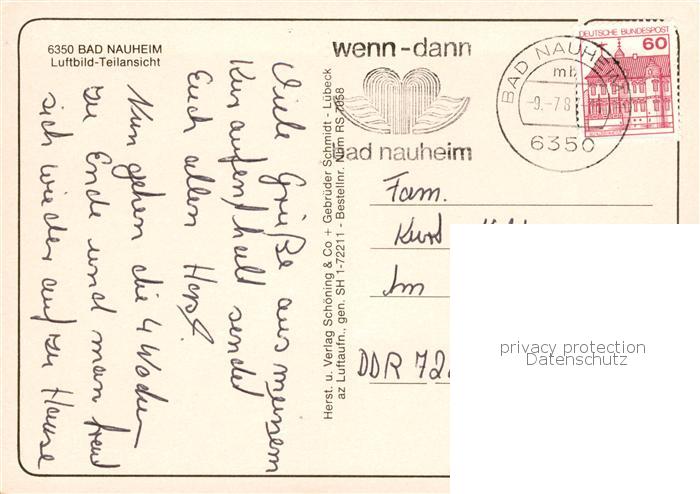 6350 BAD NAUHEIM
Luftbild-Teilansicht
wenn-dann
bad nauheim
BAD NAUHEIM
mb
-9.-7.8
6350
DEUTSCHE BUNDESPOST
60
Viele Grüße aus meinem
Kuraufenthalt sendet
Euch allen Horst.
Nun gehen die 4 Wochen
zu Ende und man freut
sich wieder auf zu Hause
Herst. u. Verlag Schöning & Co + Gebrüder Schmidt - Lübeck
az Luftaufn., gen. SH 1-72211 - Bestellnr. Nhm RS 7058
Fam.
Kurt
Im
DDR 72
privacy protection
Datenschutz